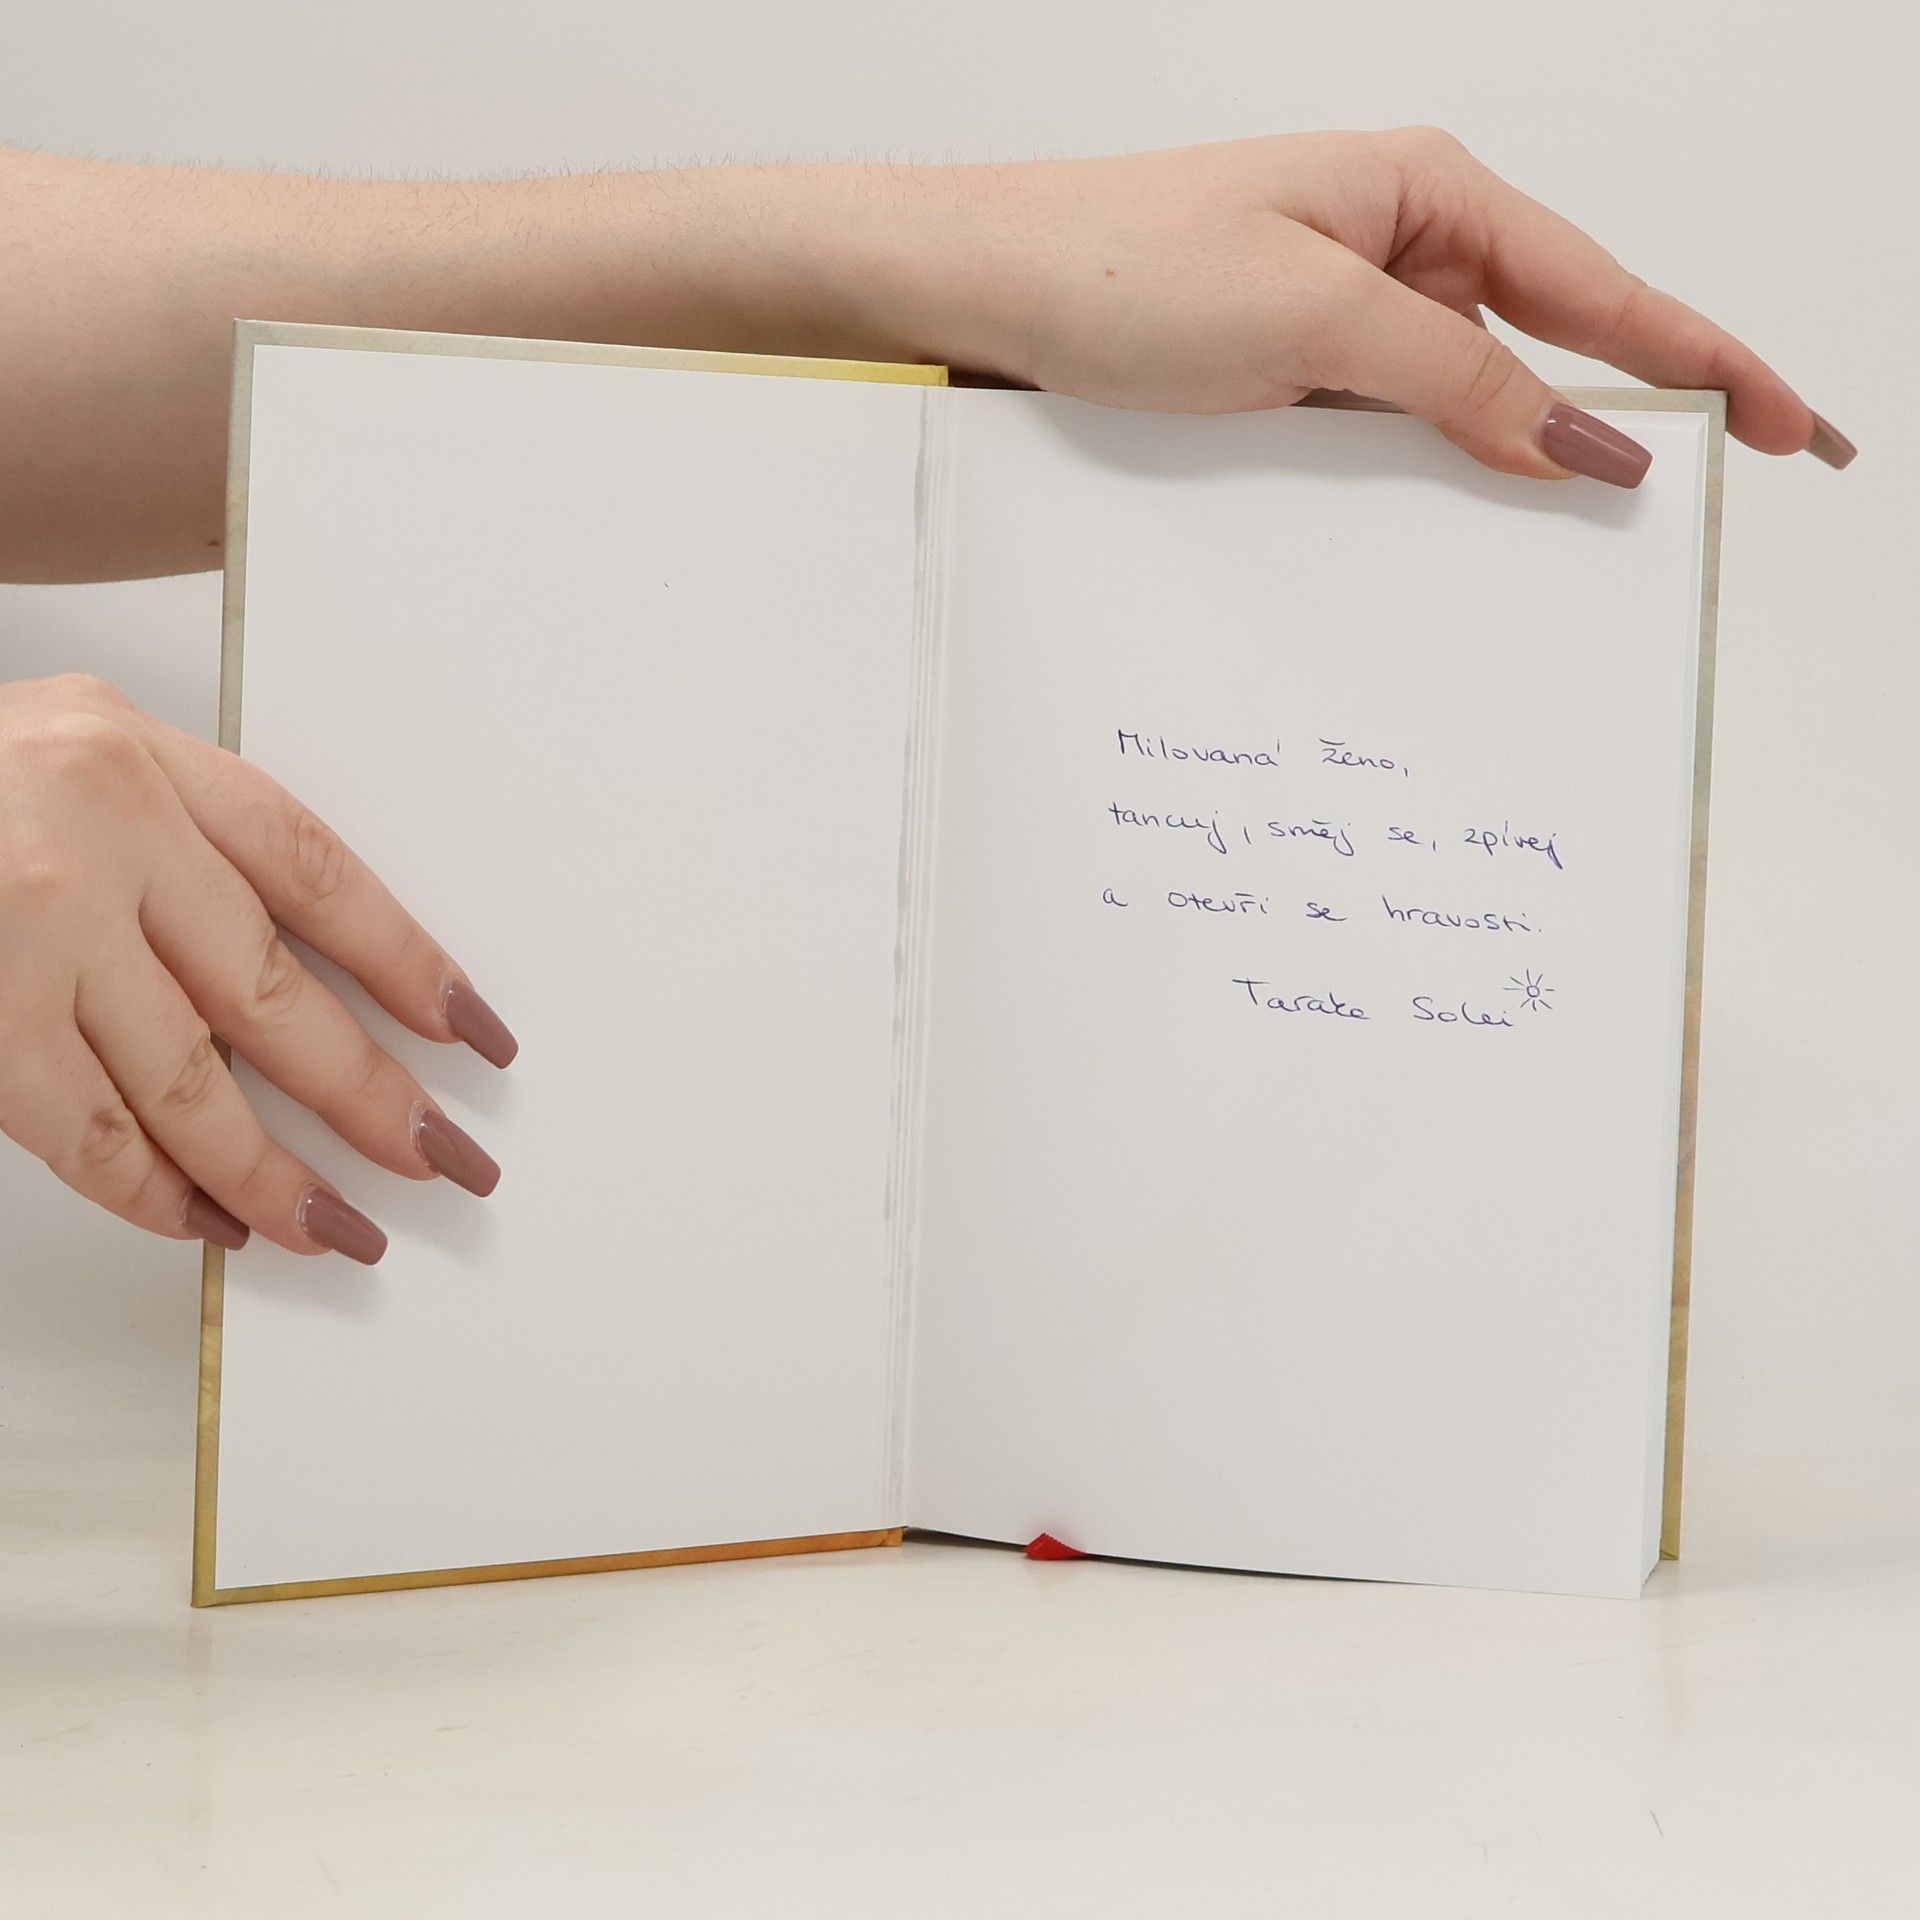 Milovaná ženo,
tancuj, směj se, zpívej
a otevři se hravosti.
Solei